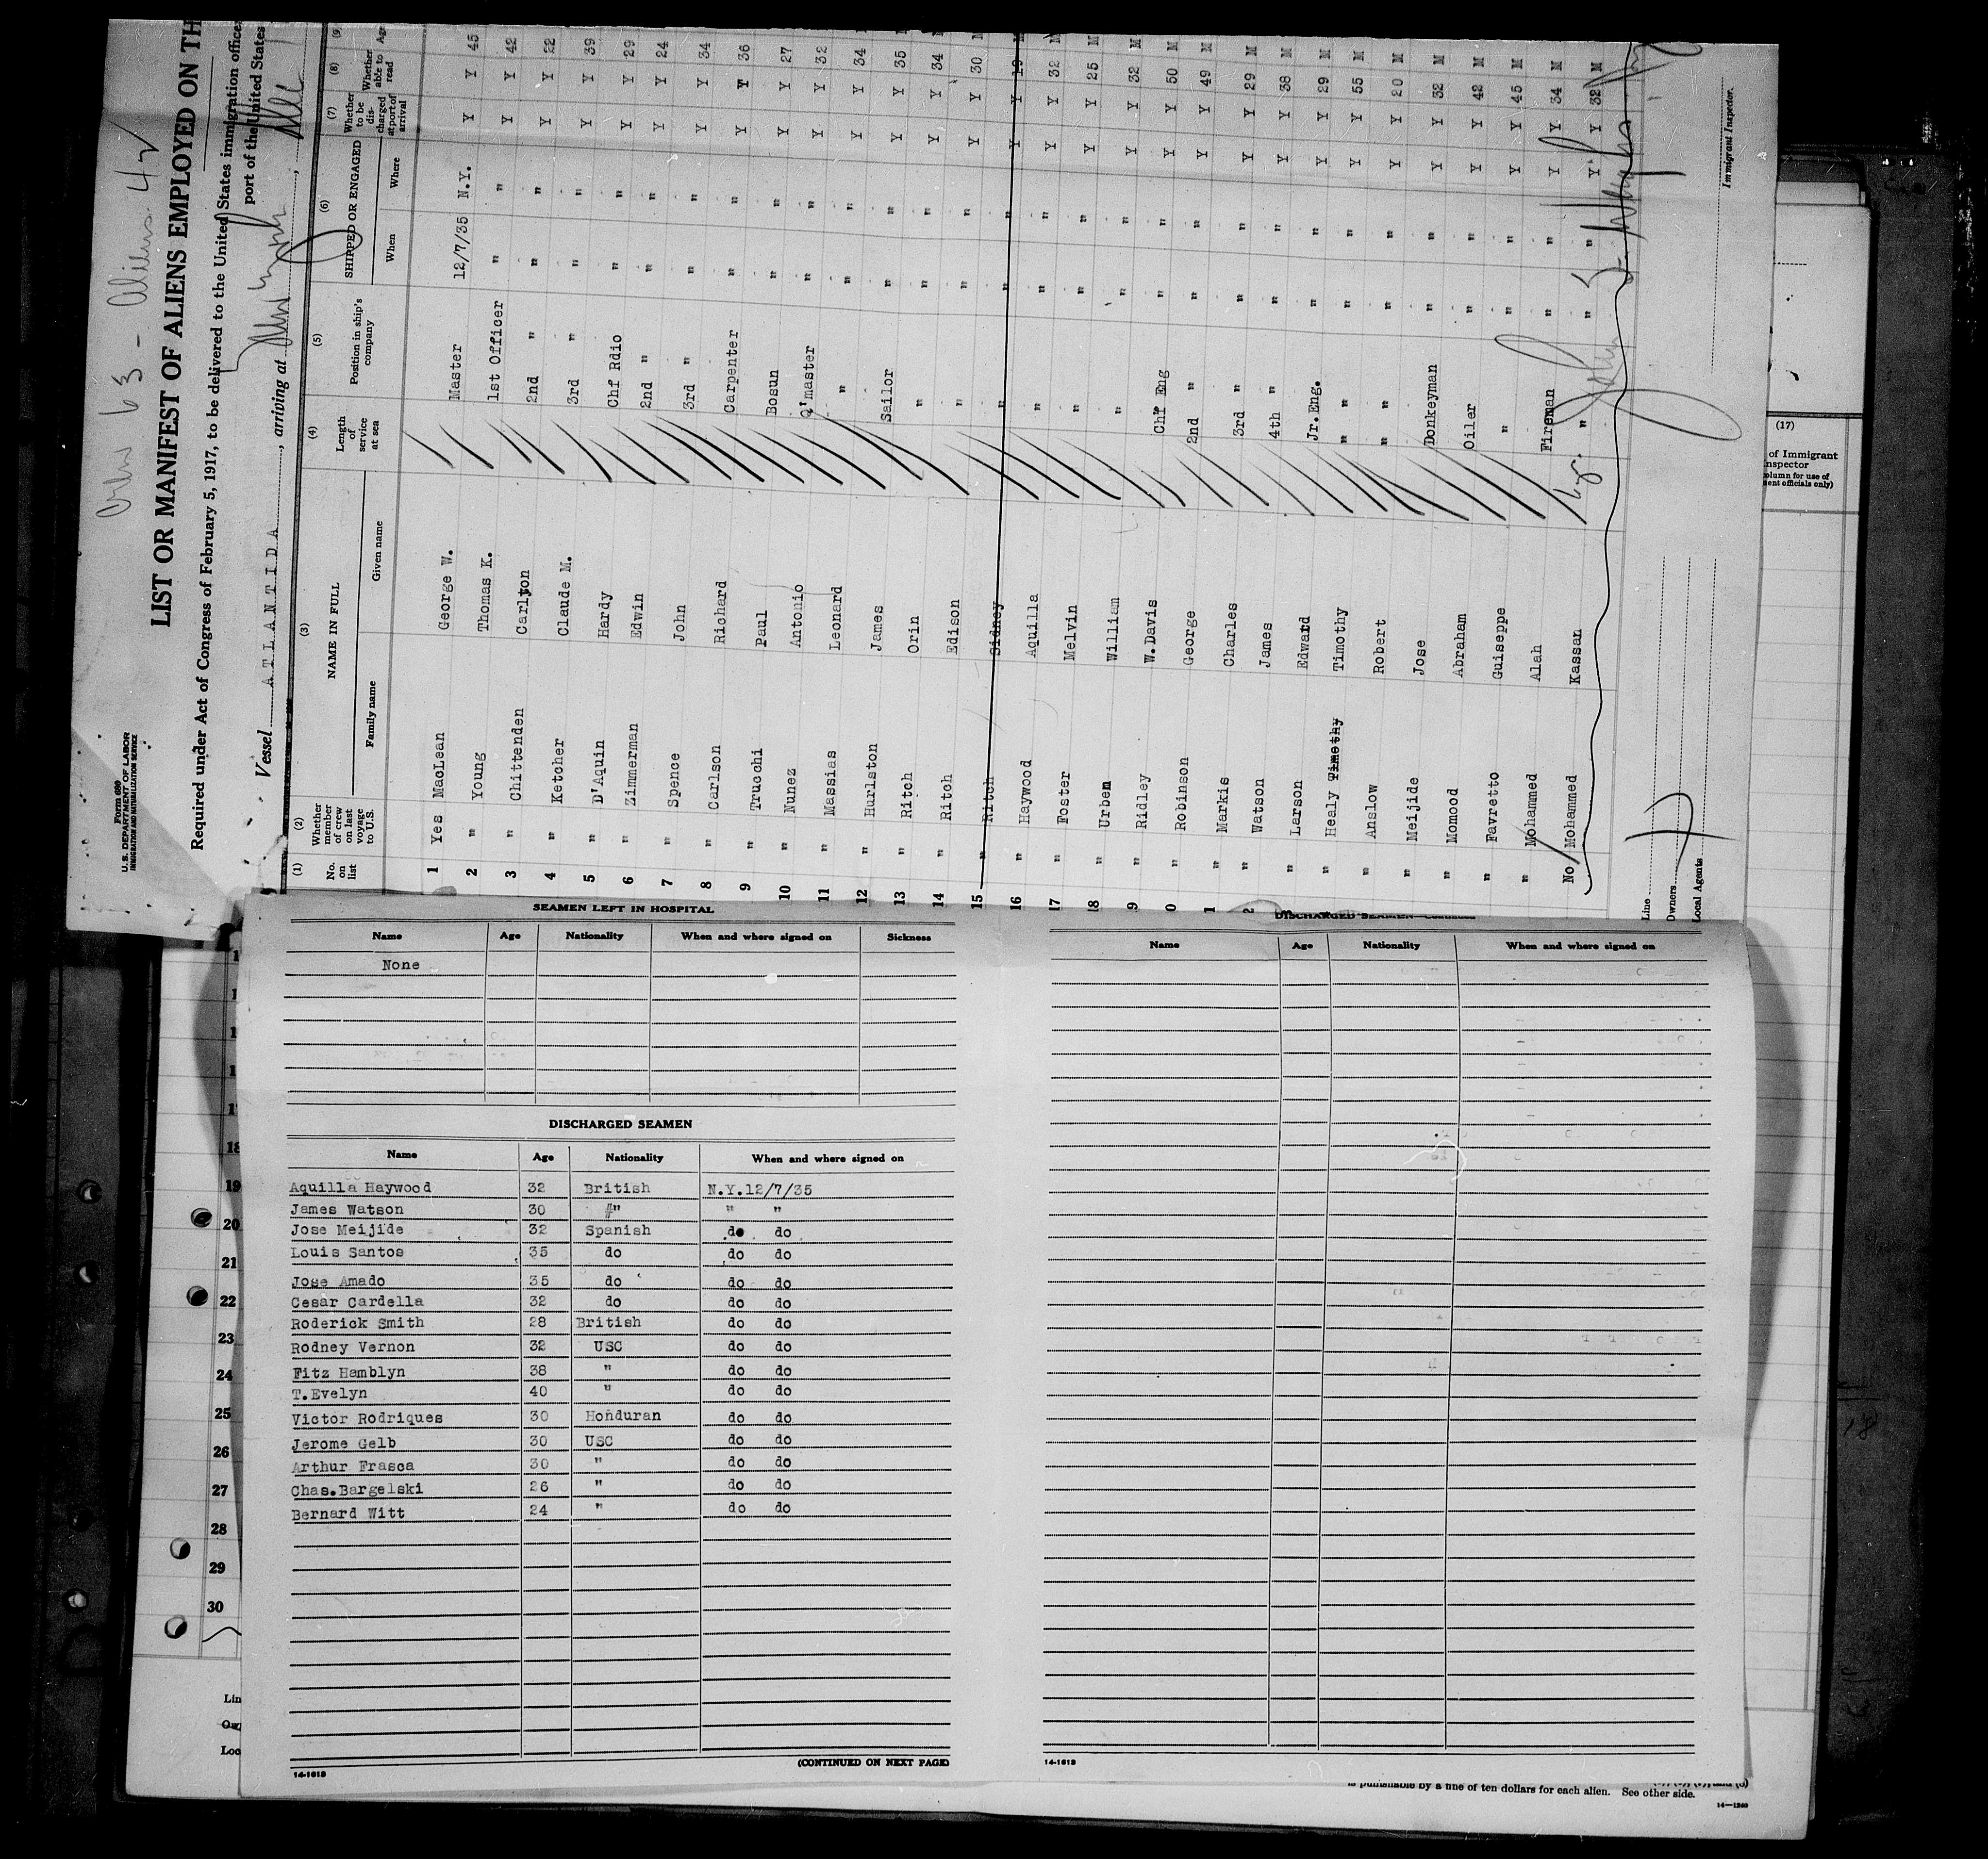 Crew 63 - Aliens 42
LIST OR MANIFEST OF ALIENS EMPLOYED ON TH
Required under Act of Congress of February 5, 1917, to be delivered to the United States immigration office
port of the United States
Form 680
U.S. DEPARTMENT OF LABOR
IMMIGRATION AND NATURALIZATION SERVICE
Vessel ATLANTIDA, arriving at
(1) (2) (3) (4) (5) (6) (7) (8) (9)
No. on list
Whether member of crew on last voyage to U.S.
NAME IN FULL
Family name Given name
Length of service at sea
Position in ship's company
SHIPPED OR ENGAGED
When Where
Whether to be discharged at port of arrival
Whether able to read
Age
1 Yes MacLean George W. Master 12/7/35 N.Y. Y Y 45
2 " Young Thomas K. 1st Officer " " Y Y 42
3 " Chittenden Carlton 2nd " " " Y Y 22
4 " Ketcher Claude M. 3rd " " " Y Y 39
5 " D'Aquin Hardy Chf Rdio " " Y Y 29
6 " Zimmerman Edwin 2nd " " " Y Y 24
7 " Spence John 3rd " " " Y Y 34
8 " Carlson Richard Carpenter " " Y Y 36
9 " Trucchi Paul Bosun " " Y Y 27
10 " Nunez Antonio Q'master " " Y Y 32
11 " Massias Leonard " " " Y Y 34
12 " Hurlston James Sailor " " Y Y 35
13 " Ritch Orin " " " Y Y 34
14 " Ritch Edison " " " Y Y 30
15 " Ritch Sidney " " " Y Y 19
16 " Haywood Aquilla " " " Y Y 32 M
17 " Foster Melvin " " " Y Y 25 M
18 " Urben William " " " Y Y 32 M
9 " Ridley W.Davis Chf Eng " " Y Y 50 M
0 " Robinson George 2nd " " " Y Y 49 M
1 " Markis Charles 3rd " " " Y Y 29 M
2 " Watson James 4th " " " Y Y 38 M
" Larson Edward Jr.Eng. " " Y Y 29 M
" Healy Timothy Timothy " " " Y Y 55 M
" Anslow Robert " " " Y Y 20 M
" Meijide Jose Donkeyman " " Y Y 32 M
" Momood Abraham Oiler " " Y Y 42 M
" Favretto Guiseppe " " " Y Y 45 M
" Mohammed Alah Fireman " " Y Y 34 M
No Mohammed Kassan " " " Y Y 32 M
Line
Owners
Local Agents
Immigrant Inspector.
(17)
of Immigrant
Inspector
column for use of
ment officials only)
SEAMEN LEFT IN HOSPITAL
Name Age Nationality When and where signed on Sickness
None
DISCHARGED SEAMEN
Name Age Nationality When and where signed on
Aquilla Haywood 32 British N.Y.12/7/35
James Watson 30 " " "
Jose Meijide 32 Spanish do do
Louis Santos 35 do do do
Jose Amado 35 do do do
Cesar Cardella 32 do do do
Roderick Smith 28 British do do
Rodney Vernon 32 USC do do
Fitz Hamblyn 38 " do do
T.Evelyn 40 " do do
Victor Rodriques 30 Honduran do do
Jerome Gelb 30 USC do do
Arthur Frasca 30 " do do
Chas.Bargelski 26 " do do
Bernard Witt 24 " do do
(CONTINUED ON NEXT PAGE)
14-1613
DISCHARGED SEAMEN
Name Age Nationality When and where signed on
14-1613
18
19
20
21
22
23
24
25
26
27
28
29
30
Lin
Ow
Loc
is punishable by a fine of ten dollars for each alien. See other side.
14-1240